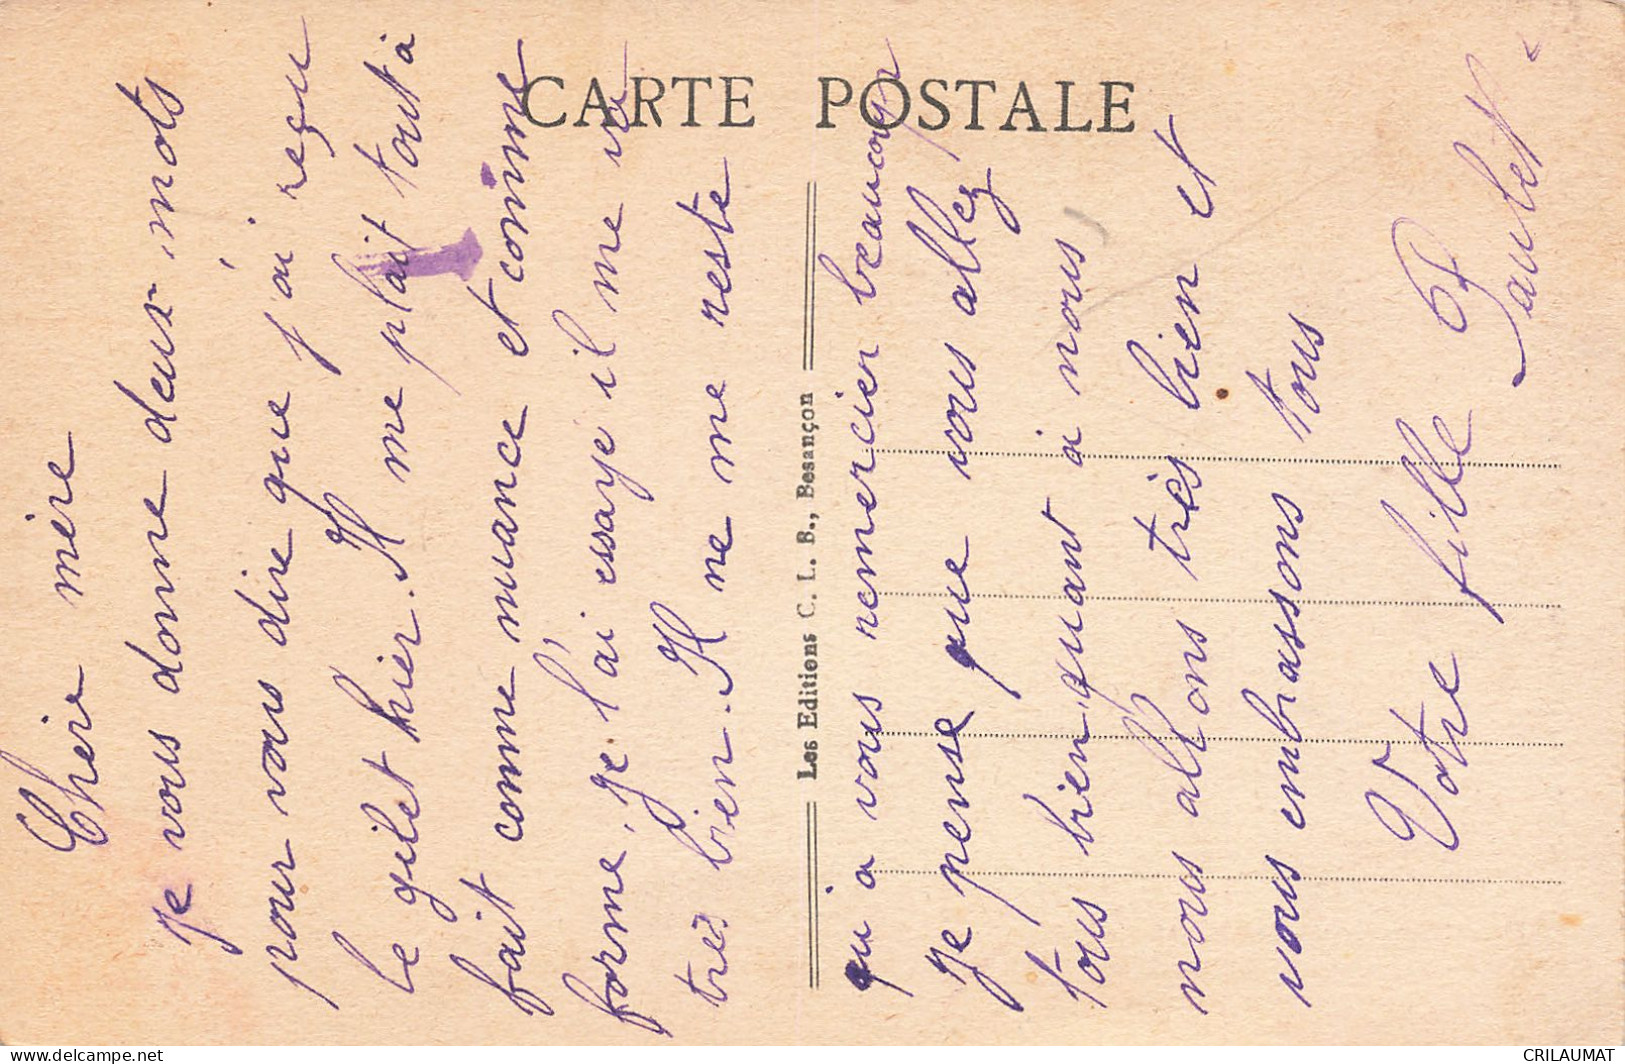 CARTE POSTALE
Les Editions C. L. B., Besançon
Chère mère
je vous donne deux mots
pour vous dire que j'ai reçu
le gilet hier. Il me plait tout à
fait comme nuance et comme
forme, je l'ai essaye il me va
très bien. Il ne me reste
qu'a vous remercier beaucoup
je pense que vous allez
tous bien, quant à nous
nous allons très bien et
vous embrassons tous
Votre fille Paulet
CRILAUMAT